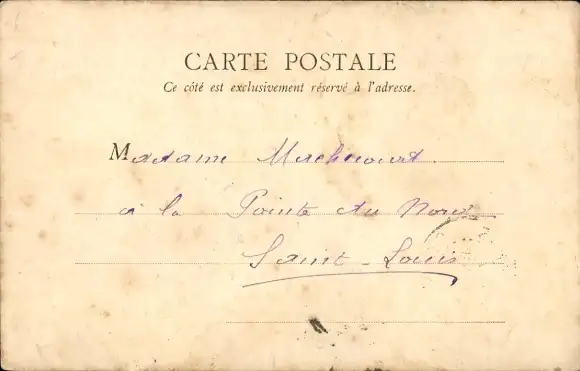 CARTE POSTALE
Ce côté est exclusivement réservé à l'adresse.
Madame
à la Pointe du Nord
Saint-Louis